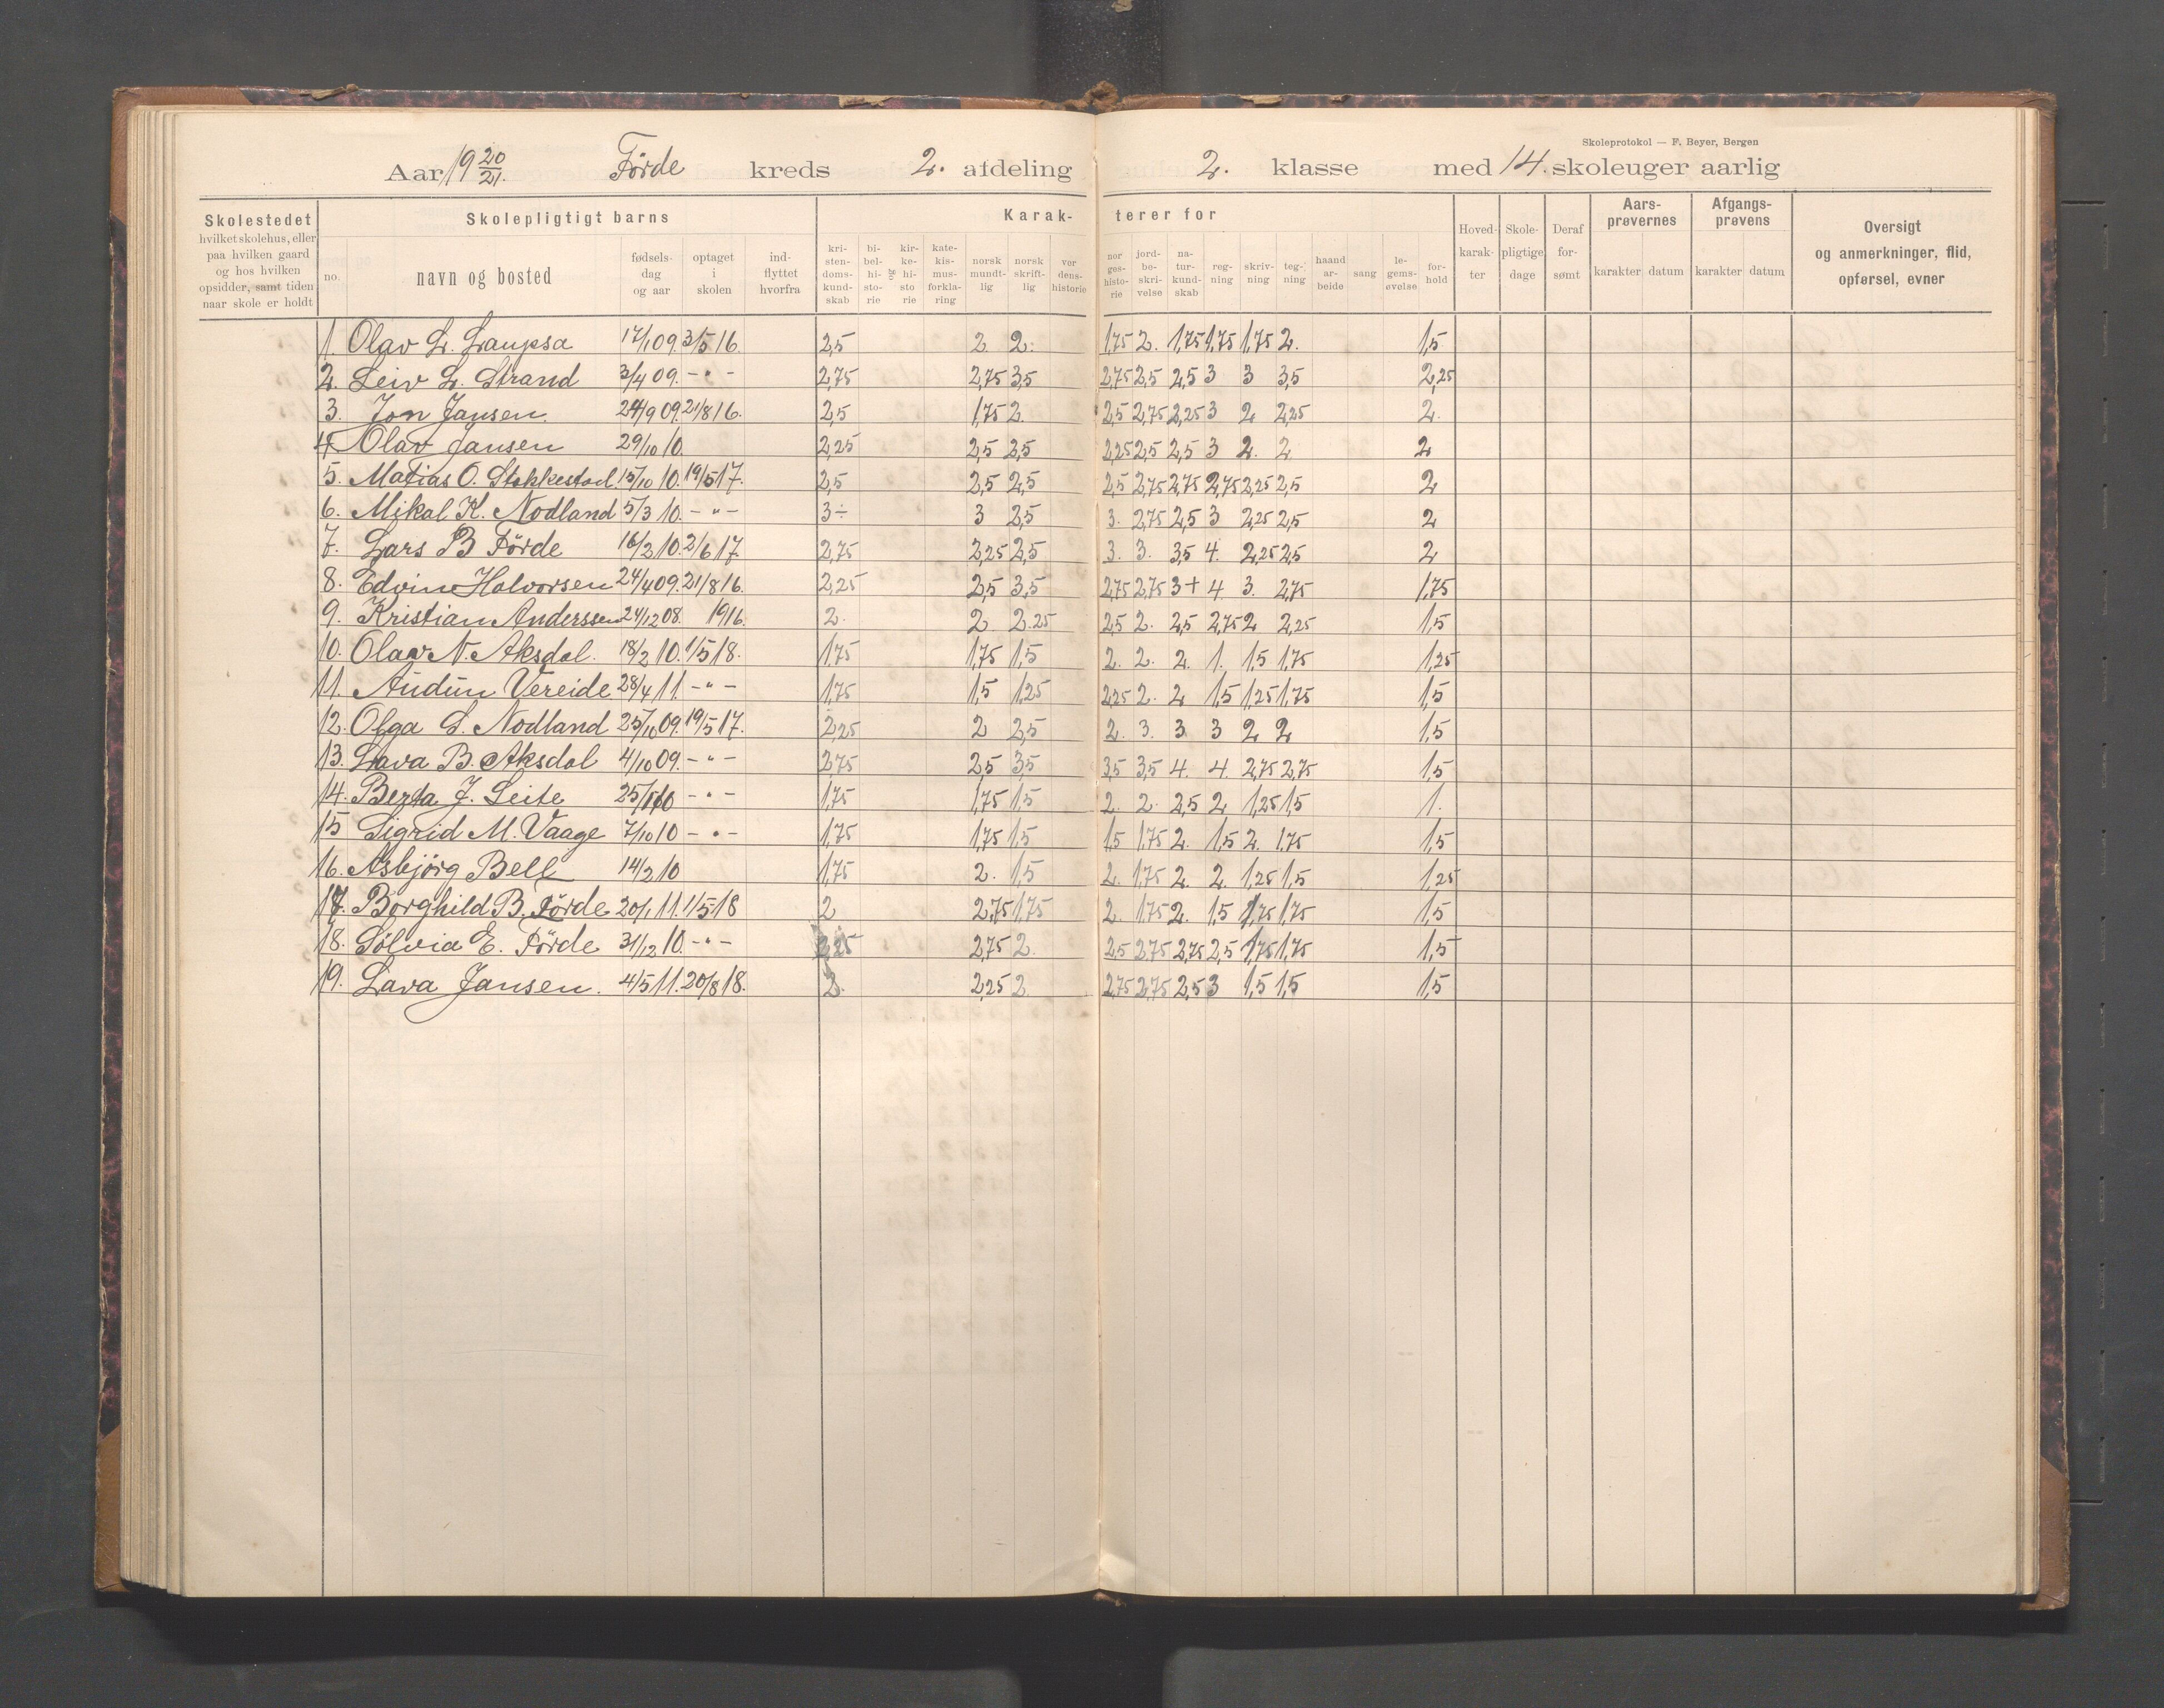 Skoleprotokol — F. Beyer, Bergen
Aar 19 20/21. Førde kreds 2. afdeling 2. klasse med 14. skoleuger aarlig
Skolestedet hvilket skolehus, eller paa hvilken gaard og hos hvilken opsidder, samt tiden naar skole er holdt
Skolepligtigt barns
no. navn og bosted fødselsdag og aar optaget i skolen indflyttet hvorfra
Karakterer for
kristendomskundskab bibelhistorie og kirkehistorie katekismusforklaring norsk mundtlig norsk skriftlig verdenshistorie norgeshistorie jordbeskrivelse naturkundskab regning skrivning tegning haandarbeide sang legemsøvelse forhold
Hovedkarakter Skolepligtige dage Deraf forsømt
Aarsprøvernes karakter datum
Afgangsprøvens karakter datum
Oversigt og anmerkninger, flid, opførsel, evner
1. Olav L. Laupsa 17/1 09. 3/5 16. 2,5 2 2. 1,75 2. 1,75 1,75 1,75 2. 1,5
2. Leiv L. Strand 3/4 09. - " - 2,75 2,75 3,5 2,75 2,5 2,5 3 3 3,5 2,25
3. Jon Jansen. 24/9 09. 21/8 16. 2,5 1,75 2. 2,5 2,75 2,25 3 2 2,25 2.
4 Olav Jansen 29/10 10. 2,25 2,5 2,5 2,25 2,5 2,5 3 2. 2 2
5. Matias O. Stokkestad. 15/10 10. 19/5 17. 2,5 2,5 2,5 2,5 2,75 2,75 2,75 2,25 2,5 2
6. Mikal K. Nodland 5/3 10. - " - 3÷ 3 2,5 3. 2,75 2,5 3 2,25 2,5 2
7. Lars B Førde 16/2 10. 2/6 17. 2,75 2,25 2,5 3. 3. 3,5 4. 2,25 2,5 2
8. Edvin Halvorsen 24/4 09. 21/8 16. 2,25 2,5 3,5 2,75 2,75 3+ 4. 3. 2,75 1,75
9. Kristian Anderssen 24/12 08. 1916. 2. 2 2.25 2,5 2. 2,5 2,75 2 2,25 1,5
10. Olav N. Aksdal. 18/2 10. 1/5 18. 1,75 1,75 1,5 2. 2. 2. 1. 1,5 1,75 1,25
11. Audun Vereide 28/4 11. - " - 1,75 1,5 1,25 2,25 2. 2 1,5 1,25 1,75 1,5
12. Olga S. Nodland 25/10 09. 19/5 17. 2,25 2 2,5 2. 3. 3 3 2 2 1,5
13. Lava B. Aksdal 4/10 09. - " - 2,75 2,5 3,5 3,5 3,5 4. 4. 2,75 2,75 1,5
14. Berta J. Leite 25/ 10 - " - 1,75 1,75 1,5 2. 2. 2,5 2 1,25 1,5 1.
15 Sigrid M. Vaage 7/10 10 - " - 1,75 1,75 1,5 1,5 1,75 2. 1,5 2. 1,75 1,5
16. Asbjørg Bell 14/2 10 1,75 2. 1,5 2. 1,75 2. 2. 1,25 1,5 1,25
17. Borghild B. Førde 20/1 11. 1/5 18 2 2,75 1,75 2. 1,75 2. 1,5 1,75 1,75 1,5
18. Sølvia E. Førde 31/12 10. - " - 2,25 2,75 2. 2,5 2,75 2,75 2,5 1,75 1,75 1,5
19. Lava Jansen. 4/5 11. 20/8 18. 2. 2,25 2 2,75 2,75 2,5 3 1,5 1,5 1,5